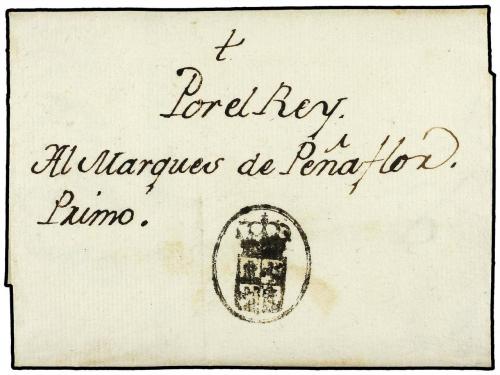 Por el Rey.
Al Marques de Peñaflor.
Primo.